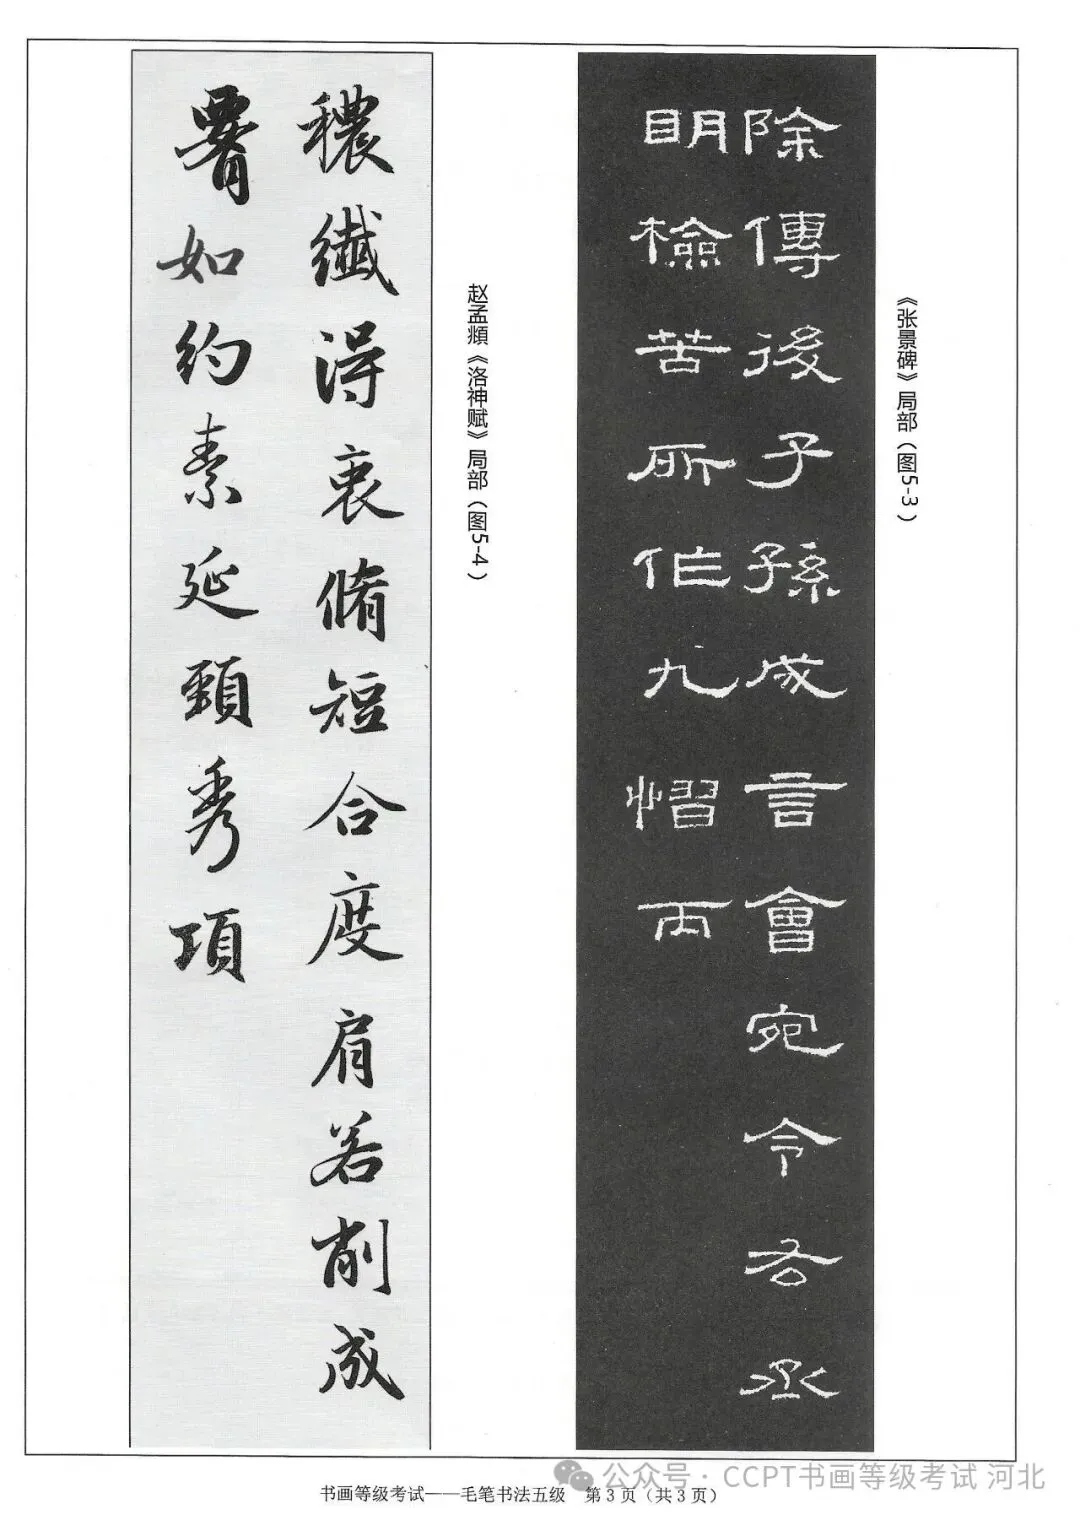 《张景碑》局部（图5-3）
除傳後子孫成言會宛令右丞
明檢苦所作九慴丙
赵孟頫《洛神赋》局部（图5-4）
穠纖得衷脩短合度肩若削成
署如约素延頸秀項
书画等级考试——毛笔书法五级 第3页（共3页）
公众号·CCPT书画等级考试 河北